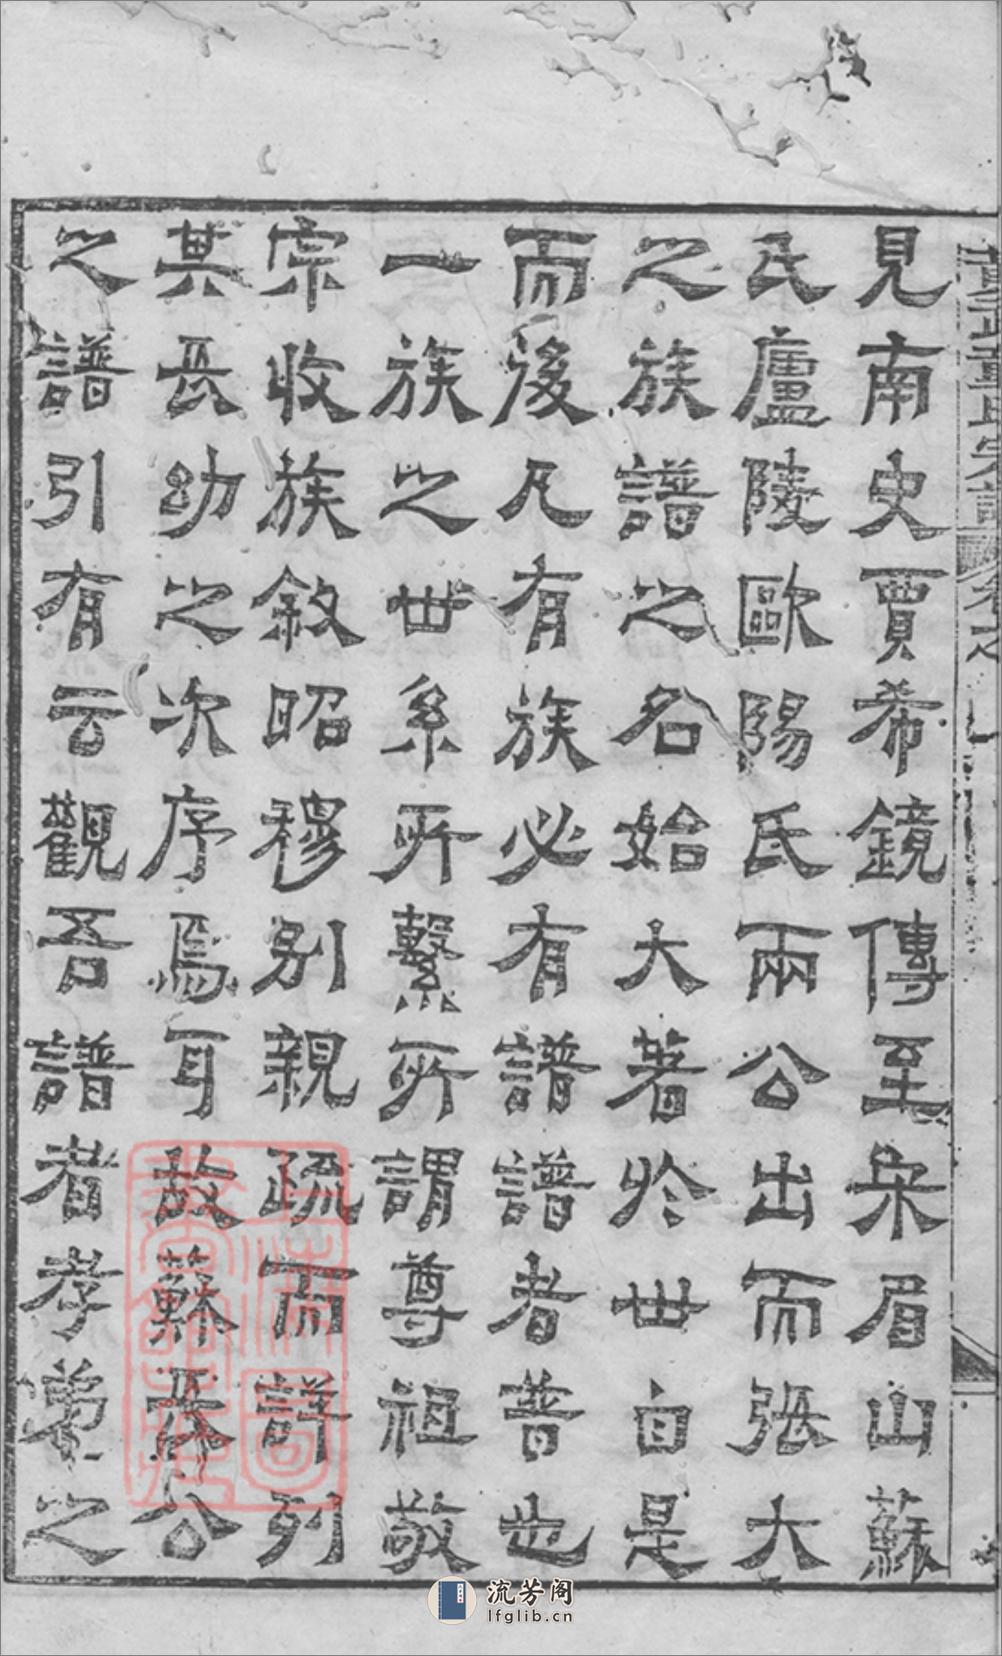 見南史賈希鏡傳至宋眉山蘇
氏廬陵歐陽氏兩公出而張大
之族譜之名始大著於世自是
而後凡有族必有譜譜者普也
一族之世系所繫所謂尊祖敬
宗收族敘昭穆別親疏而詳列
其長幼之次序焉耳故蘇長公
之譜引有云觀吾譜者孝弟之
流芳阁
lfglib.cn